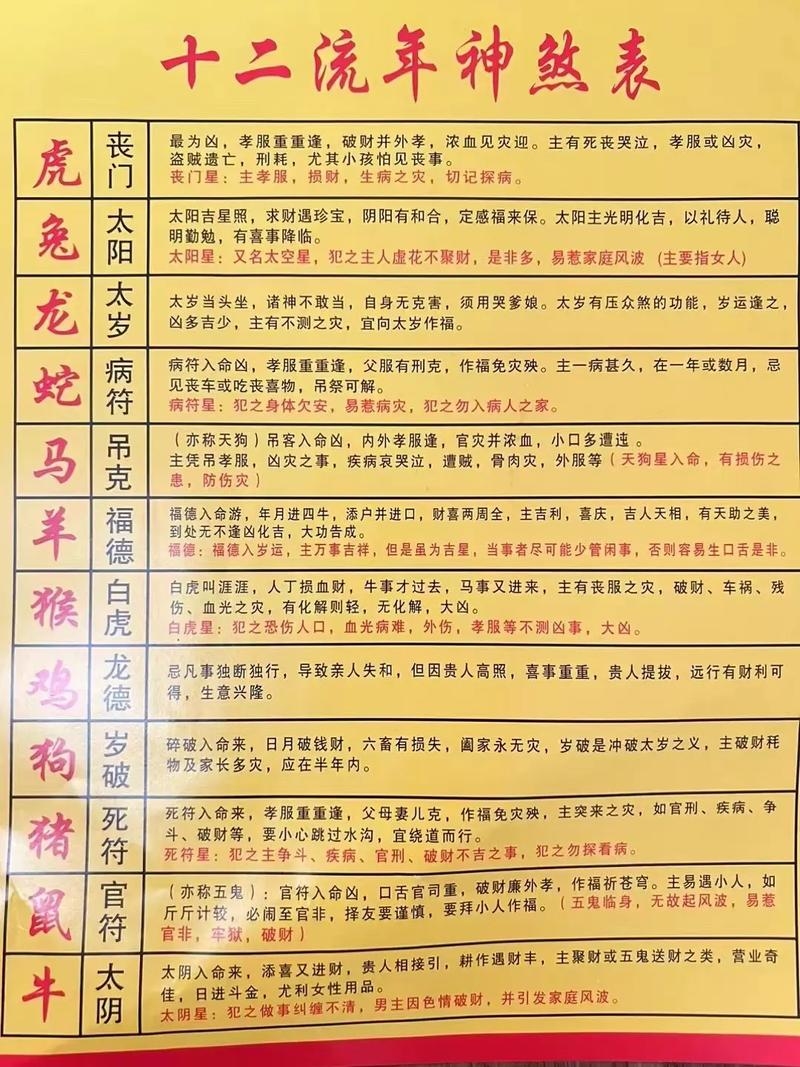 十二流年神煞表
虎
丧门
最为凶，孝服重重逢，破财并外孝，浓血见灾迎。主有死丧哭泣，孝服或凶灾，
盗贼遗亡，刑耗，尤其小孩怕见丧事。
丧门星：主孝服，损财，生病之灾，切记探病。
兔
太阳
太阳吉星照，求财遇珍宝，阴阳有和合，定感福来保。太阳主光明化吉，以礼待人，聪
明勤勉，有喜事降临。
太阳星：又名太空星，犯之主人虚花不聚财，是非多，易惹家庭风波（主要指女人）
龙
太岁
太岁当头坐，诸神不敢当，自身无克害，须用哭爹娘。太岁有压众煞的功能，岁运逢之，
凶多吉少，主有不测之灾，宜向太岁作福。
蛇
病符
病符入命凶，孝服重重逢，父服有刑克，作福免灾殃。主一病甚久，在一年或数月，忌
见丧车或吃丧喜物，吊祭可解。
病符星：犯之身体欠安，易惹病灾，犯之勿入病人之家。
马
吊克
（亦称天狗）吊客入命凶，内外孝服逢，官灾并浓血，小口多遭迍。
主凭吊孝服，凶灾之事，疾病哀哭泣，遭贼，骨肉灾，外服等（天狗星入命，有损伤之
患，防伤灾）
羊
福德
福德入命游，年月进四牛，添户并进口，财喜两周全，主吉利，喜庆，吉人天相，有天助之美，
到处无不逢凶化吉，大功告成。
福德：福德入岁运，主万事吉祥，但是虽为吉星，当事者尽可能少管闲事，否则容易生口舌是非。
猴
白虎
白虎叫涯涯，人丁损血财，牛事才过去，马事又进来，主有丧服之灾，破财、车祸、残
伤、血光之灾，有化解则轻，无化解，大凶。
白虎星：犯之恐伤人口，血光病难，外伤，孝服等不测凶事，大凶。
鸡
龙德
忌凡事独断独行，导致亲人失和，但因贵人高照，喜事重重，贵人提拔，远行有财利可
得，生意兴隆。
狗
岁破
碎破入命来，日月破钱财，六畜有损失，阖家永无灾，岁破是冲破太岁之义，主破财耗
物及家长多灾，应在半年内。
猪
死符
死符入命来，孝服重重逢，父母妻儿克，作福免灾殃，主突来之灾，如官刑、疾病、争
斗、破财等，要小心跳过水沟，宜绕道而行。
死符星：犯之主争斗、疾病、官刑、破财不吉之事，犯之勿探看病。
鼠
官符
（亦称五鬼）：官符入命凶，口舌官司重，破财廉外孝，作福祈苍穹。主易遇小人，如
斤斤计较，必闹至官非，择友要谨慎，要拜小人作福。（五鬼临身，无故起风波，易惹
官非，牢狱，破财）
牛
太阴
太阴入命来，添喜又进财，贵人相接引，耕作遇财丰，主聚财或五鬼送财之类，营业奇
佳，日进斗金，尤利女性用品。
太阴星：犯之做事纠缠不清，男主因色情破财，并引发家庭风波。